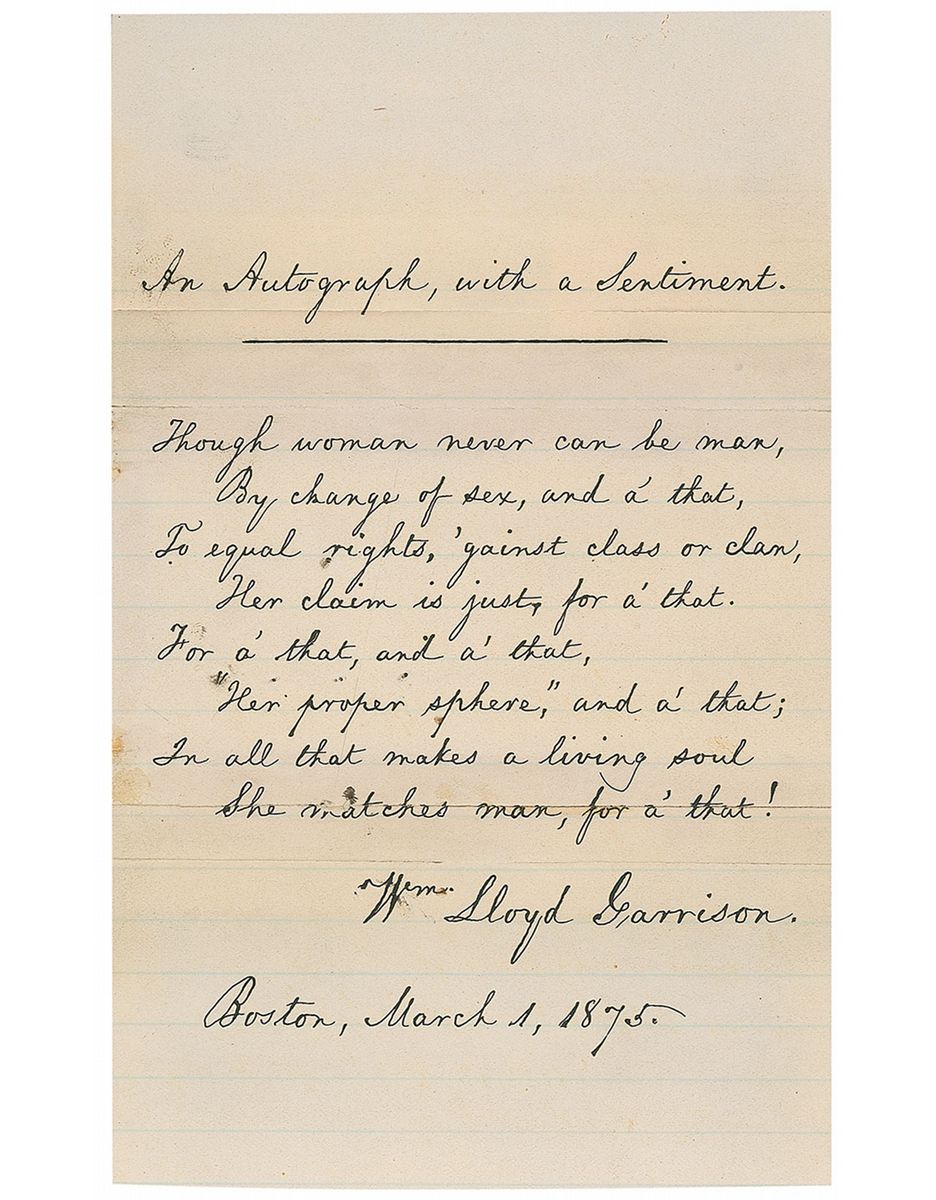 An Autograph, with a Sentiment.
Though woman never can be man,
By change of sex, and a' that,
To equal rights, 'gainst class or clan,
Her claim is just, for a' that.
For a' that, and a' that,
"Her proper sphere," and a' that;
In all that makes a living soul
She matches man, for a' that!
Wm. Lloyd Garrison.
Boston, March 1, 1875.